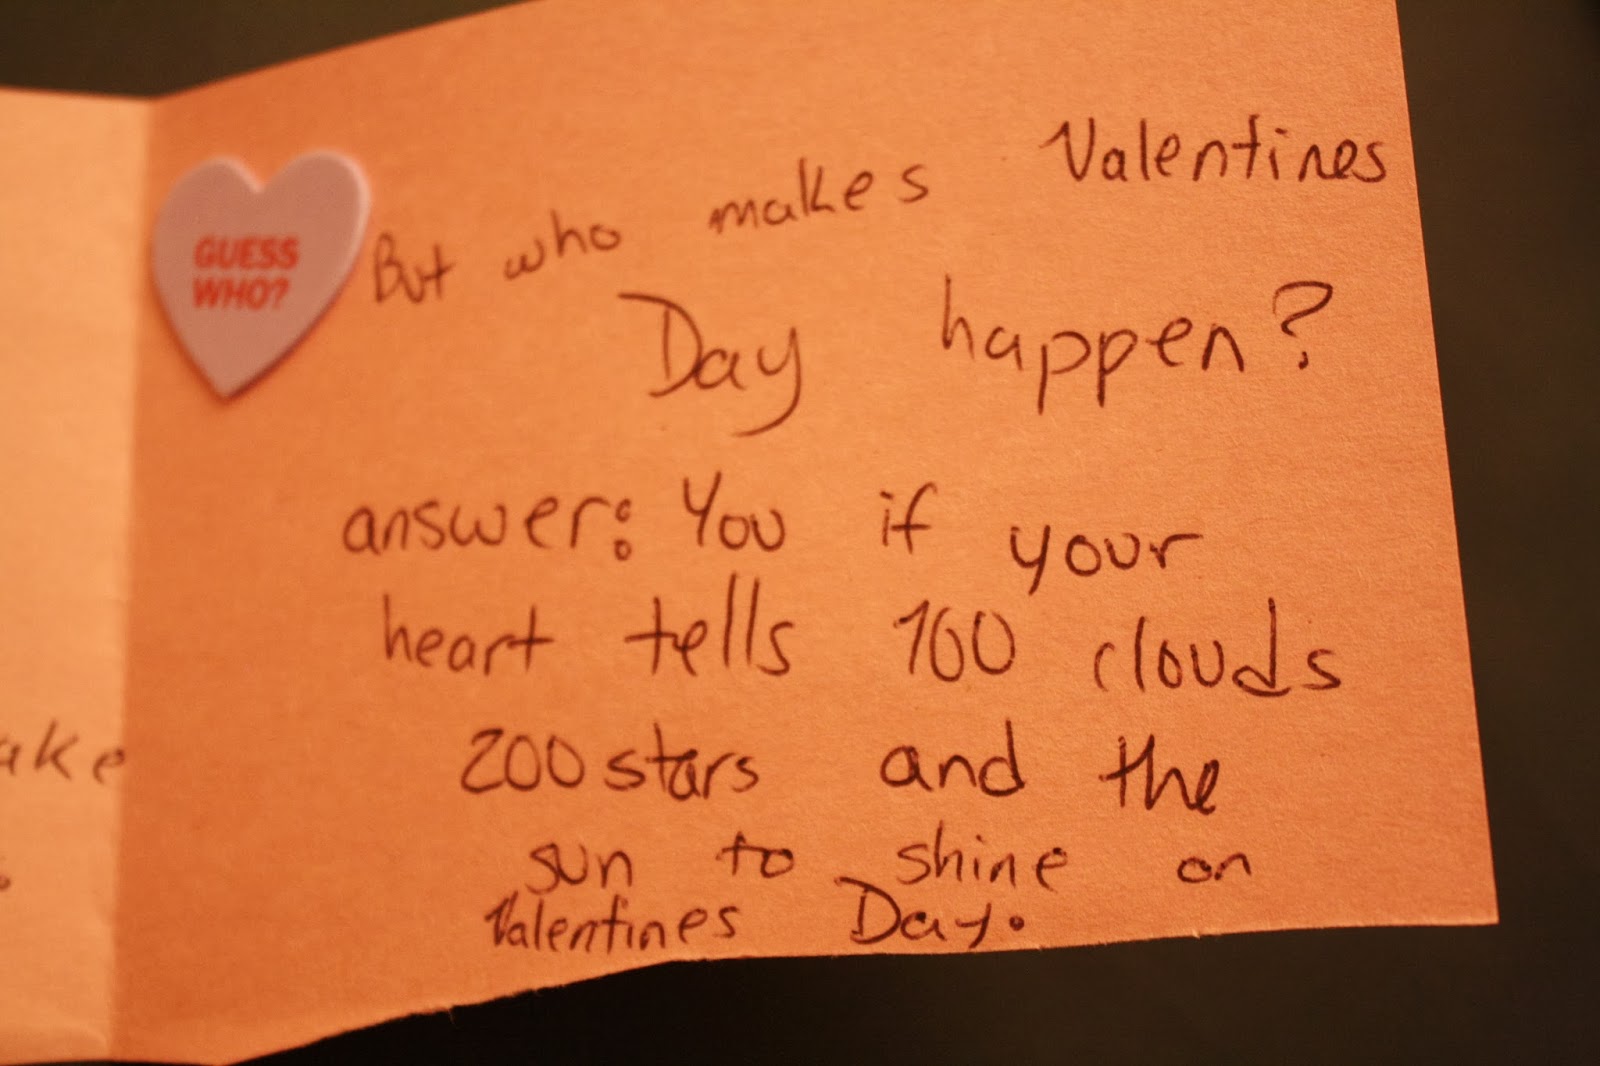 GUESS
WHO?
But who makes Valentines
Day happen?
answer: You if your
heart tells 100 clouds
200 stars and the
sun to shine on
Valentines Day.
ake